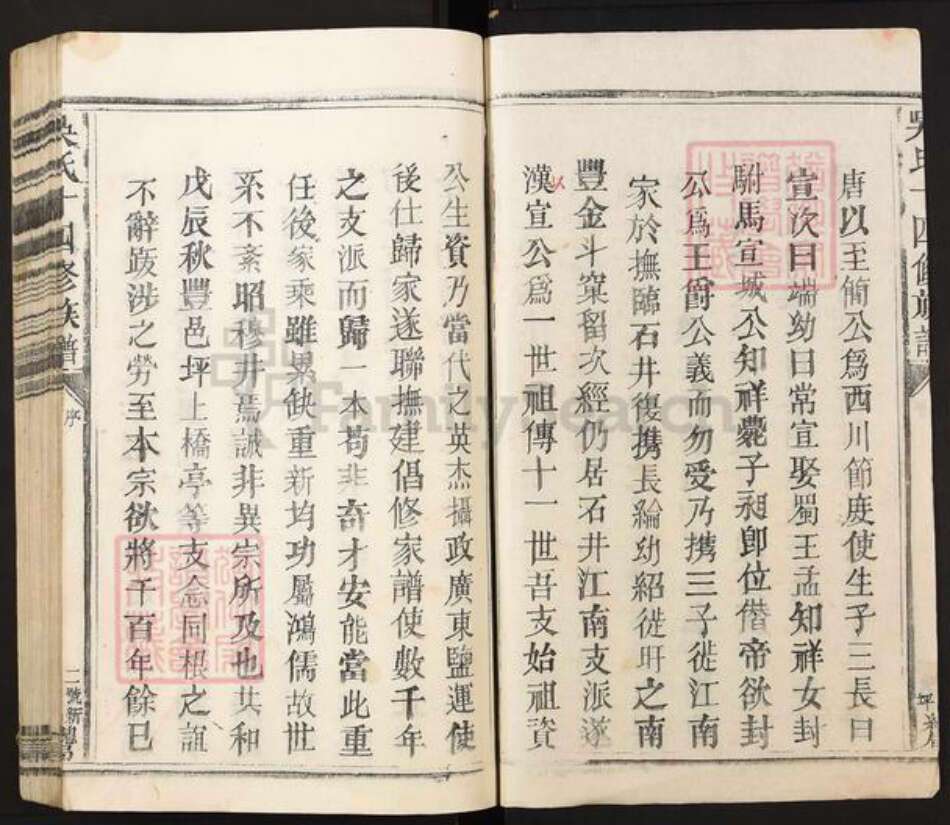 唐以至簡公爲西川節度使生子三長曰
宣次曰端幼曰常宣娶蜀王孟知祥女封
駙馬宣城公知祥薨子昶卽位僣帝欲封
公爲王爵公義而勿受乃携三子徙江南
家於撫臨石井復携長綸幼紹徙旴之南
豐金斗窠留次經仍居石井江南支派遂
漢宣公爲一世祖傳十一世吾支始祖資
吳氏十四修族譜
序
二號新
公生資乃當代之英杰攝政廣東鹽運使
後仕歸家遂聯撫建倡修家譜使數千年
之支派而歸一本苟非奇才安能當此重
任後家乘雖累缺重新均功屬鴻儒故世
系不紊昭穆井焉誠非異宗所及也共和
戊辰秋豐邑坪上橋亭等支念同根之誼
不辭跋涉之勞至本宗欲將千百年餘已
FamilySearch